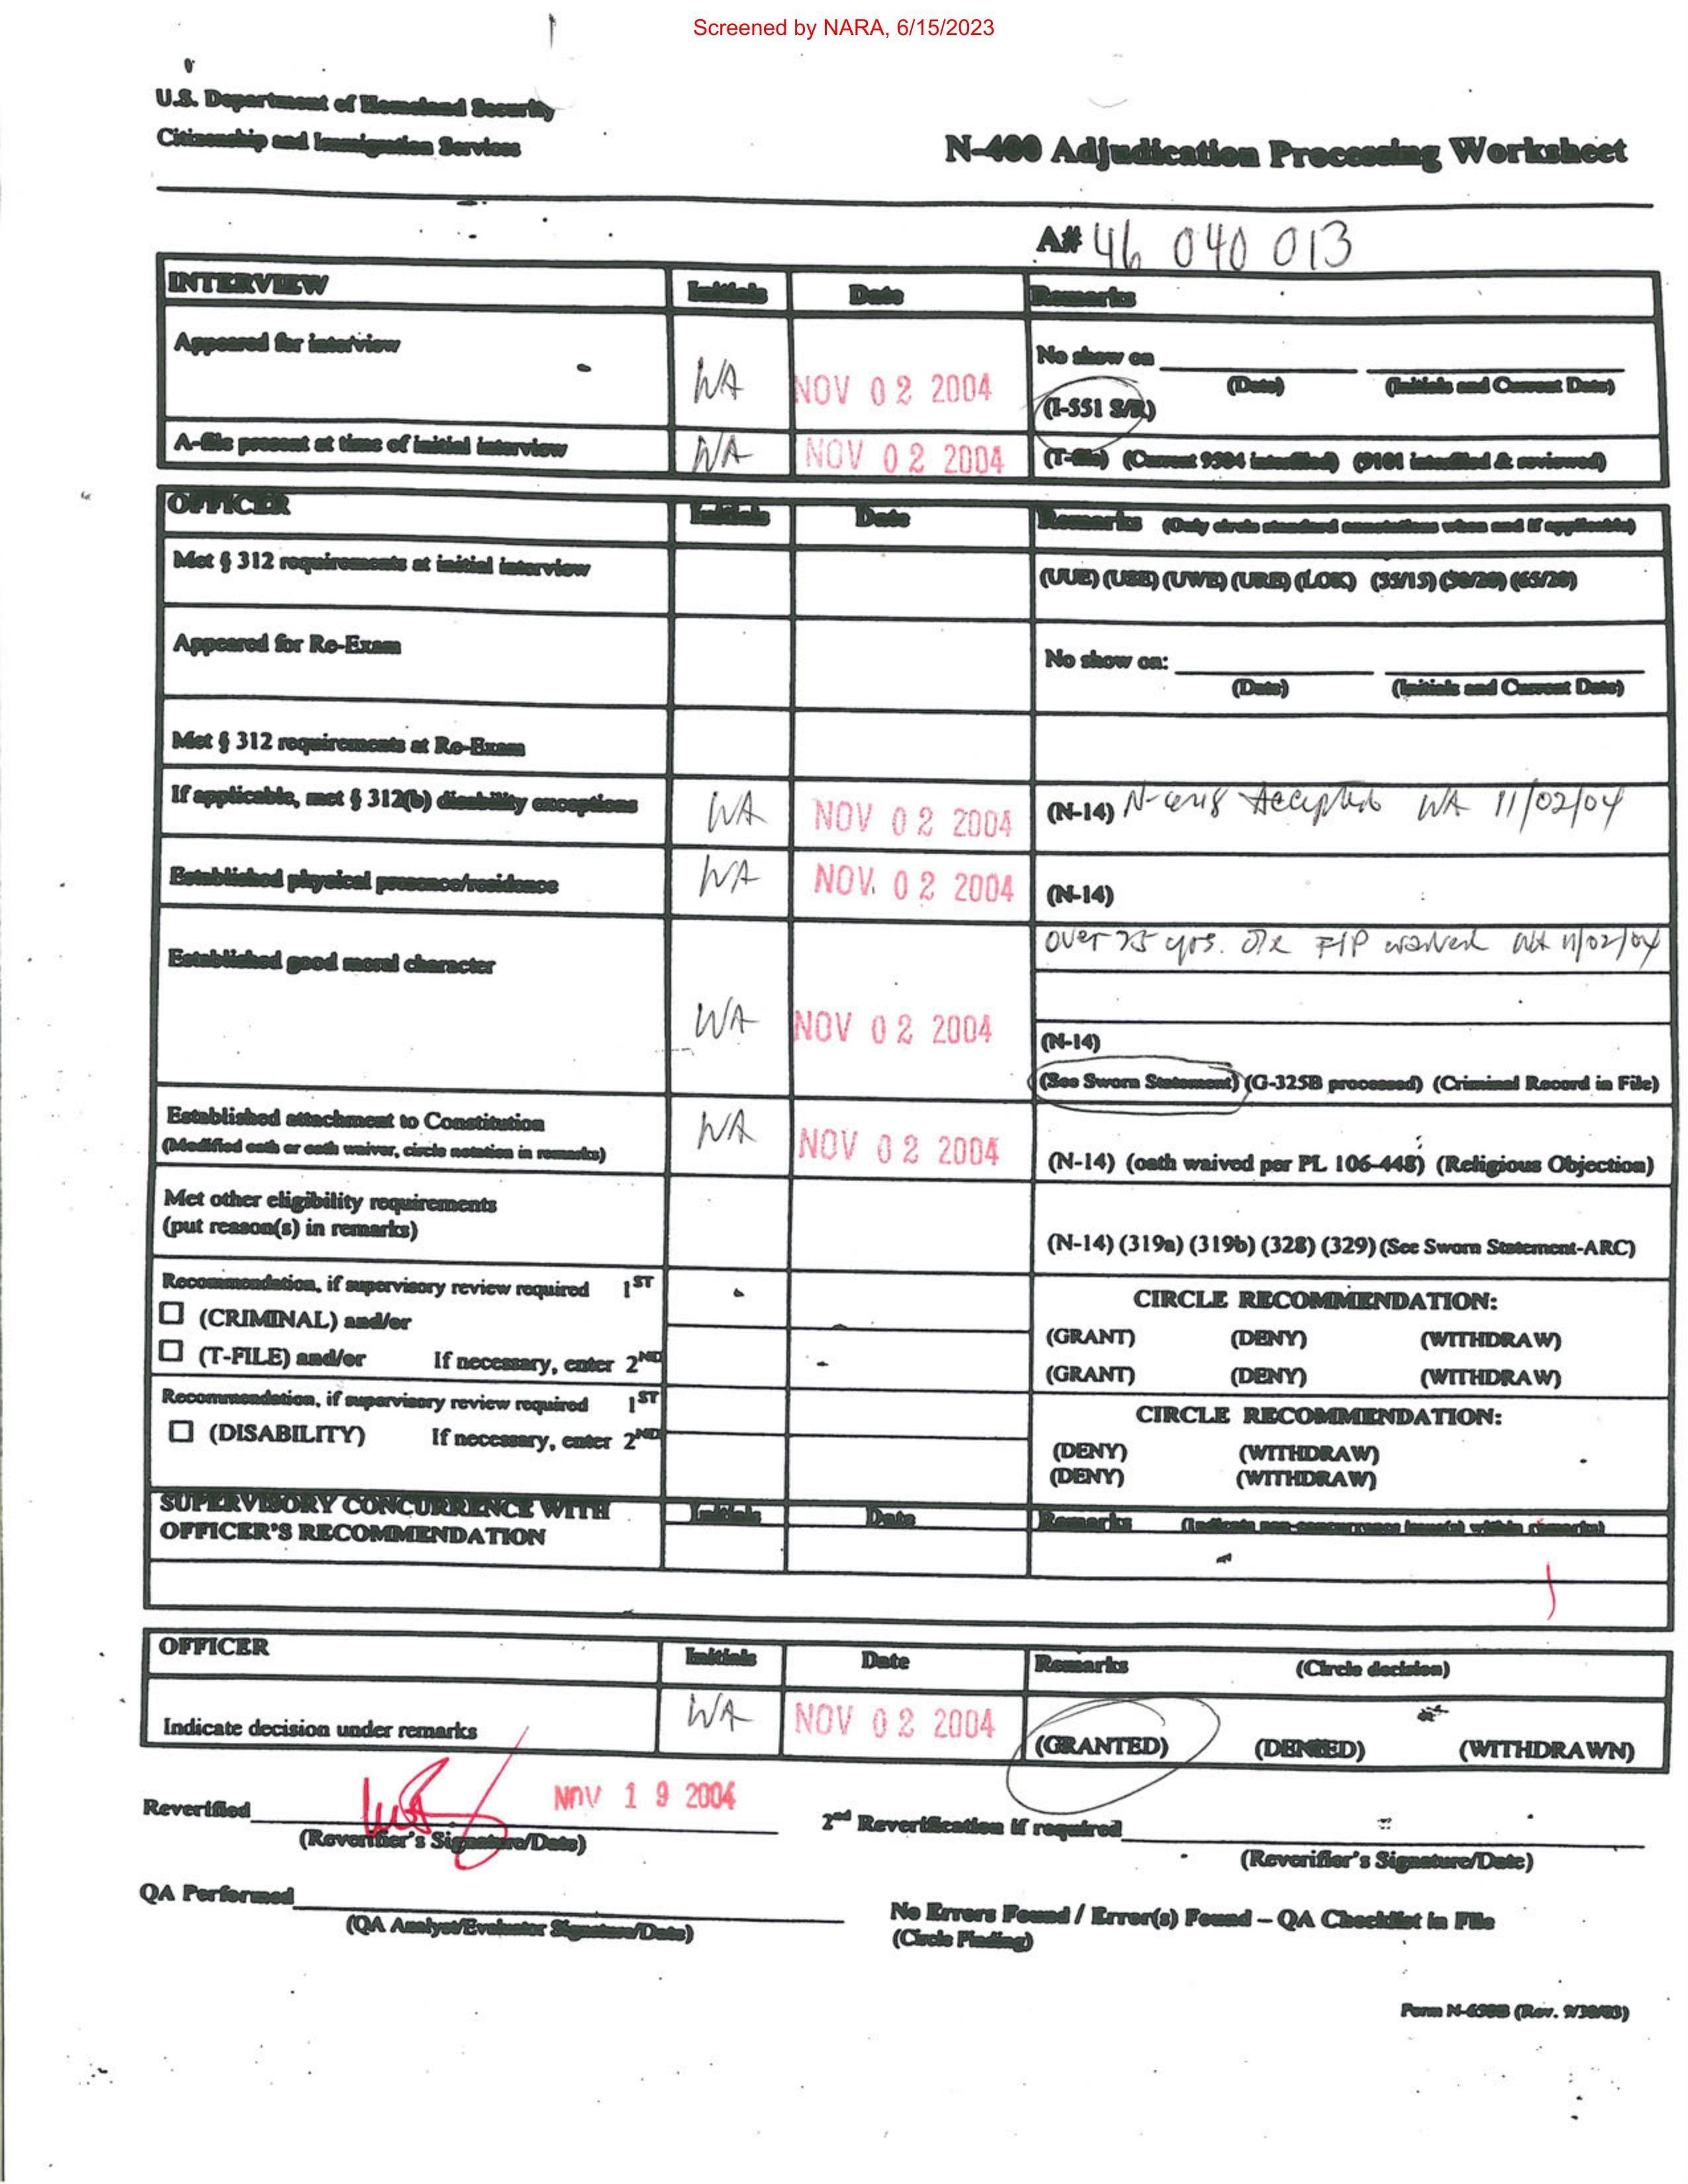 Screened by NARA, 6/15/2023
U.S. Department of Homeland Security
Citizenship and Immigration Services
N-400 Adjudication Processing Worksheet
A# 46 040 013
INTERVIEW Initials Date Remarks
Appeared for interview WA NOV 02 2004 No show on
(Date) (Initials and Current Date)
(I-551 S/R)
A-file present at time of initial interview WA NOV 02 2004 (T-file) (Current 9504 interfiled) (9101 interfiled & reviewed)
OFFICER Initials Date Remarks (Only circle standard annotations when and if applicable)
Met § 312 requirements at initial interview (UUE) (USE) (UWE) (URE) (LOK) (55/15) (50/20) (65/20)
Appeared for Re-Exam No show on:
(Date) (Initials and Current Date)
Met § 312 requirements at Re-Exam
If applicable, met § 312(b) disability exceptions WA NOV 02 2004 (N-14) Accepted WA 11/02/04
Established physical presence/residence WA NOV. 02 2004 (N-14)
Established good moral character WA NOV 02 2004 over 75 yrs. F/P waived WA 11/02/04
(N-14)
(See Sworn Statement) (G-325B processed) (Criminal Record in File)
Established attachment to Constitution WA NOV 02 2004
(Modified oath or oath waiver, circle notation in remarks) (N-14) (oath waived per PL 106-448) (Religious Objection)
Met other eligibility requirements
(put reason(s) in remarks) (N-14) (319a) (319b) (328) (329) (See Sworn Statement-ARC)
Recommendation, if supervisory review required 1ST CIRCLE RECOMMENDATION:
☐ (CRIMINAL) and/or (GRANT) (DENY) (WITHDRAW)
☐ (T-FILE) and/or If necessary, enter 2ND (GRANT) (DENY) (WITHDRAW)
Recommendation, if supervisory review required 1ST CIRCLE RECOMMENDATION:
☐ (DISABILITY) If necessary, enter 2ND (DENY) (WITHDRAW)
(DENY) (WITHDRAW)
SUPERVISORY CONCURRENCE WITH Initials Date Remarks (Indicate non-concurrence issue(s) within remarks)
OFFICER'S RECOMMENDATION
OFFICER Initials Date Remarks (Circle decision)
Indicate decision under remarks WA NOV 02 2004 (GRANTED) (DENIED) (WITHDRAWN)
Reverified NOV 19 2004 2nd Reverification if required
(Reverifier's Signature/Date) (Reverifier's Signature/Date)
QA Performed No Errors Found / Error(s) Found – QA Checklist in File
(QA Analyst/Evaluator Signature/Date) (Circle Finding)
Form N-650B (Rev. 9/30/03)